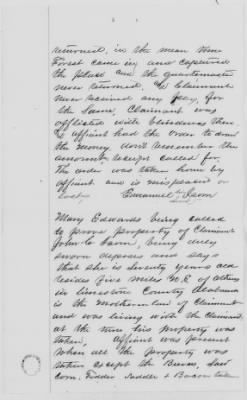 returned, in the mean time
Forest came in and captured
the place and the quartermaster
never returned, & Claimant
never received any pay, for
the same, Claimant was
afflicted with blindness then
& affiant had the order to draw
the money, dont remember the
amount receipt called for.
The order was taken home by
affiant and is misplaced or
lost
Emanuel Isom
Mary Edwards being called
to prove property of Claimant
John C Isom, being duly
sworn deposes and says
that she is seventy years old
resides five miles N.E. of Athens
in Limestone County Alabama
is the Mother in law of Claimant
and was living with the Claimant
at the time his property was
taken, affiant was present
when all the property was
taken except the Beeves, saw
corn, Fodder Saddle & Bacon taken